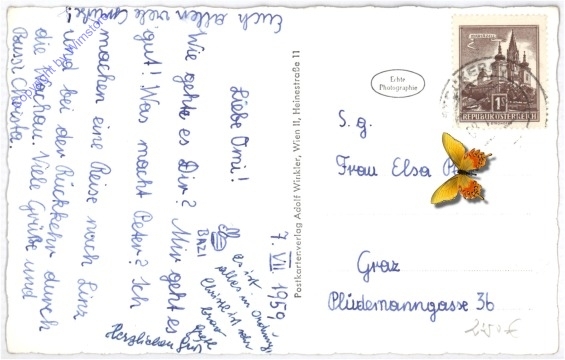 7. VII. 1959
Liebe Omi!
Wie geht es Dir? Mir geht es
gut! Was macht Peter? Ich
machen eine Reise nach Linz
und bei der Rückkehr durch
die Wachau. Viele Grüße und
Bussi Christa.
Euch allen viele Grüße!
BAZI
es ist
alles in Ordnung
Christa ist sehr
brav
Herzlichen
Postkartenverlag Adolf Winkler, Wien II, Heinestraße 11
Echte
Photographie
1S
REPUBLIK OSTERREICH
S. g.
Frau Elsa
Graz
Plüdemanngasse 36